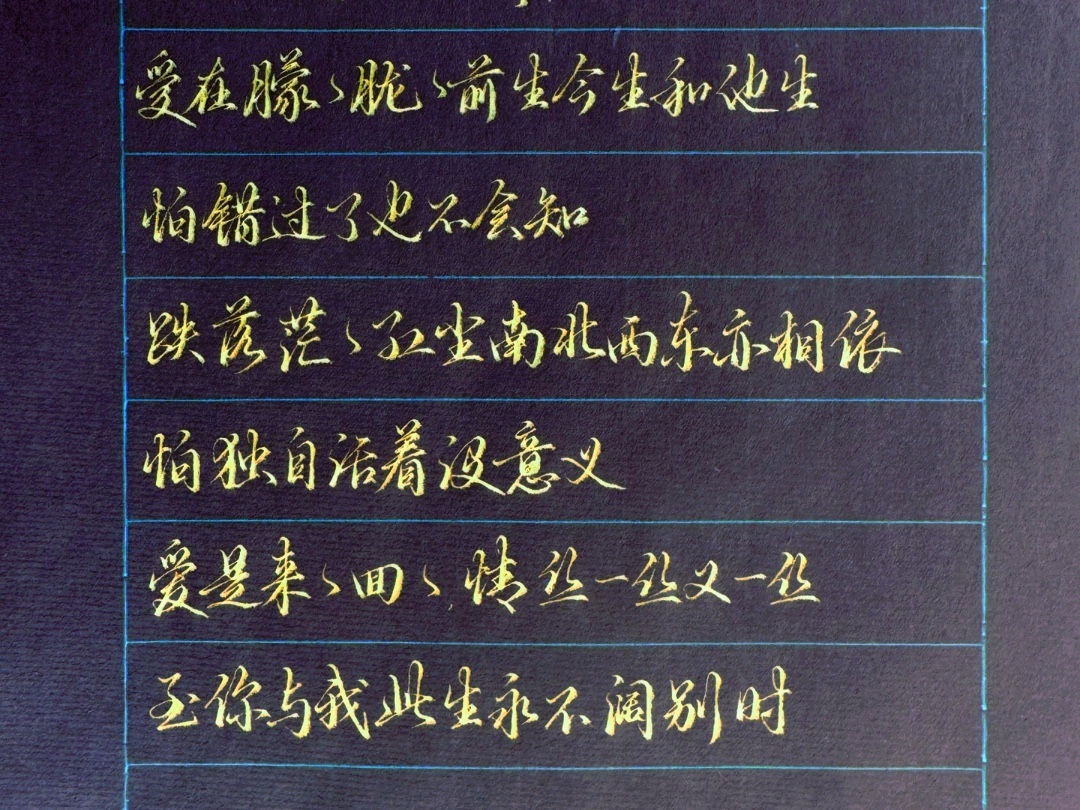 爱在朦々胧々前生今生和他生
怕错过了也不会知
跌落茫々红尘南北西东亦相依
怕独自活着没意义
爱是来々回々，情丝一丝又一丝
至你与我此生永不阔别时